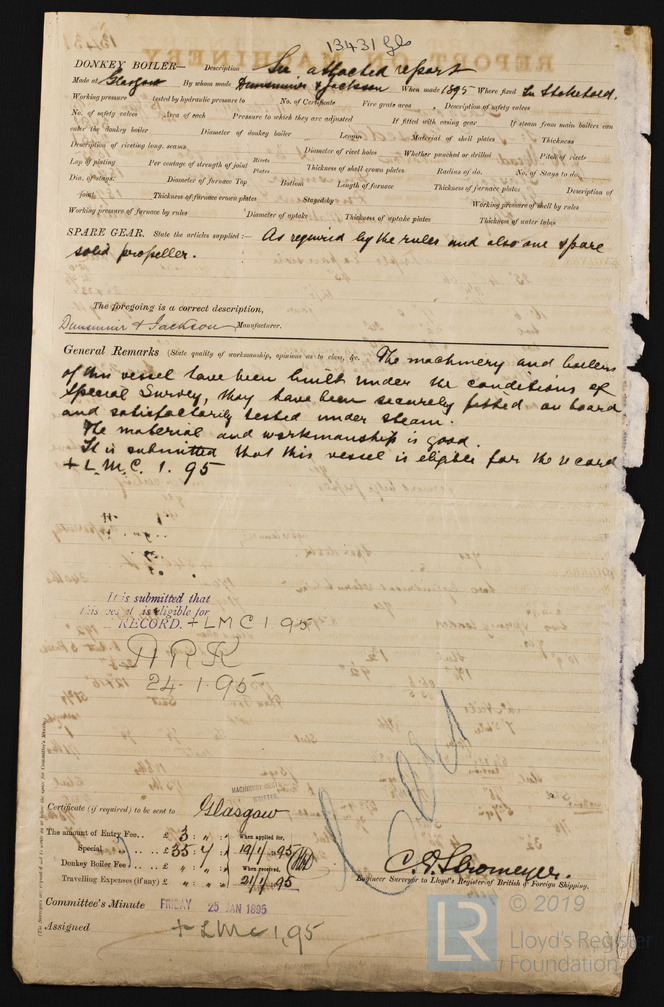 13431 Gls
DONKEY BOILER— Description See attached report
Made at Glasgow By whom made Dunsmuir & Jackson When made 1895 Where fixed In Stokehold.
Working pressure tested by hydraulic pressure to No. of Certificate Fire grate area Description of safety valves
No. of safety valves Area of each Pressure to which they are adjusted If fitted with easing gear If steam from main boilers can
enter the donkey boiler Diameter of donkey boiler Length Material of shell plates Thickness
Description of riveting long. seams Diameter of rivet holes Whether punched or drilled Pitch of rivets
Lap of plating Per centage of strength of joint Rivets Plates Thickness of shell crown plates Radius of do. No. of Stays to do.
Dia. of stays. Diameter of furnace Top Bottom Length of furnace Thickness of furnace plates Description of
joint Thickness of furnace crown plates Stayed by Working pressure of shell by rules
Working pressure of furnace by rules Diameter of uptake Thickness of uptake plates Thickness of water tubes
SPARE GEAR. State the articles supplied:— As required by the rules and also one spare
solid propeller.
The foregoing is a correct description,
Dunsmuir & Jackson Manufacturer.
General Remarks (State quality of workmanship, opinions as to class, &c. The machinery and boilers
of this vessel have been built under the conditions of
Special Survey, they have been securely fitted on board
and satisfactorily tested under steam.
The material and workmanship is good.
It is submitted that this vessel is eligible for the record
+ L.M.C. 1. 95
It is submitted that
this vessel is eligible for
RECORD. + LMC 1 95
24.1.95
Certificate (if required) to be sent to Glasgow
The amount of Entry Fee.. £ 3 : " : " When applied for,
Special .. £ 35 : 4 : 19/1/1895
Donkey Boiler Fee .. £ " : " : " When received,
Travelling Expenses (if any) £ " : " : " 21/1/95
C. A. Stromeyer.
Engineer Surveyor to Lloyd's Register of British & Foreign Shipping.
Committee's Minute FRIDAY 25 JAN 1895
Assigned + LMC 1,95
© 2019
LR
Lloyd's Register
Foundation